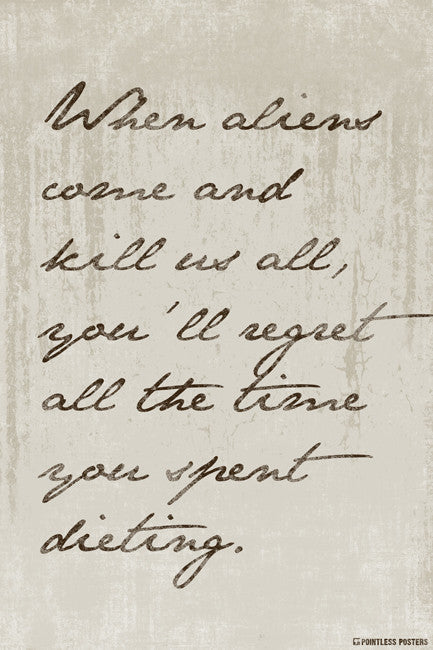 When aliens
come and
kill us all,
you'll regret
all the time
you spent
dieting.
POINTLESS POSTERS